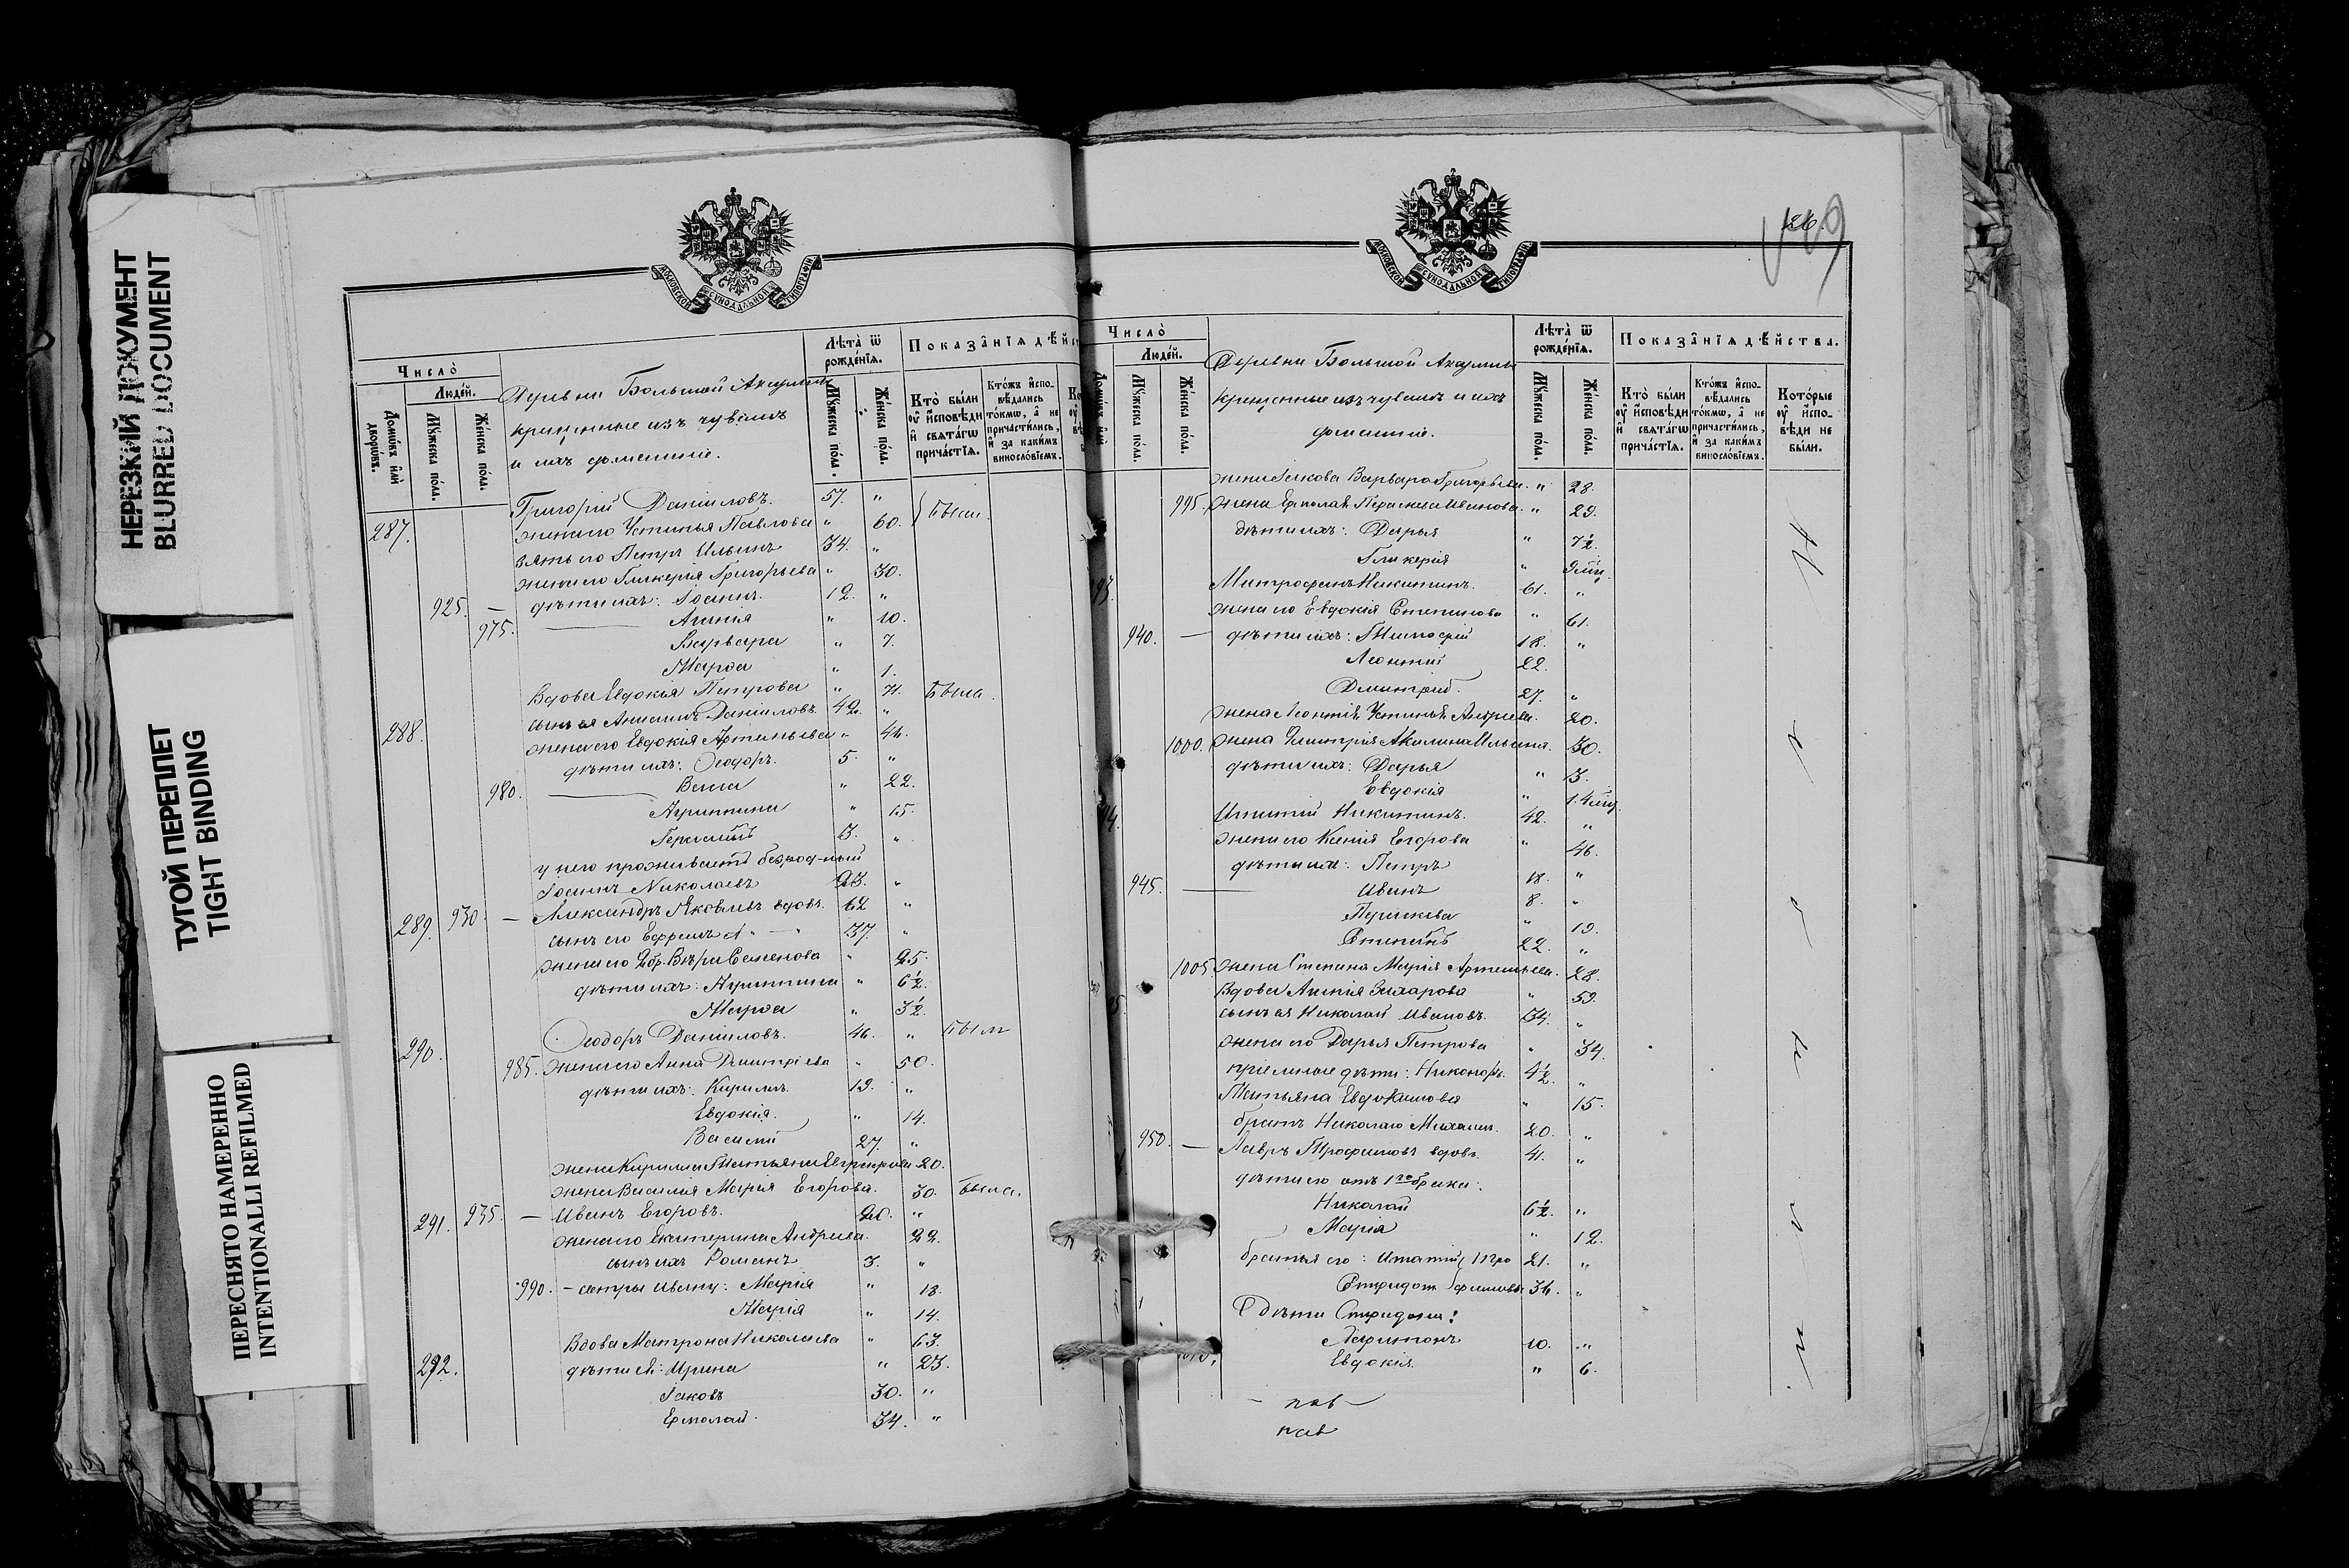 НЕРЕЗКИЙ ДОКУМЕНТ
BLURRED DOCUMENT
ТУГОЙ ПЕРЕПЛЕТ
TIGHT BINDING
ПЕРЕСНЯТО НАМЕРЕННО
INTENTIONALLI REFILMED
МОСКОВСКОЙ СѴНОДАЛЬНОЙ ТИПОГРАФІИ
Число̀
Людéй.
Домѡ́въ и҆лѝ дворѡ́въ.
Мꙋ́жеска по́ла.
Же́нска по́ла.
Деревни Большой Аксулы
крещенные изъ чувашъ
и ихъ домашніе.
Лѣ́та ѿ рожде́нїѧ.
Мꙋ́жеска по́ла.
Же́нска по́ла.
Показа̑нїѧ дѣ́йст
Кто̀ бы́ли ᲂу҆ и҆́сповѣди и҆ свѧта́гѡ прича́стїѧ.
Кто́жъ и҆спо-вѣ́дались то́кмѡ, а҆ не причасти́лись, и҆ за каки́мъ винослóвїемъ.
287. Григорій Даніиловъ. 57. " Были.
жена его Устинья Павлова " 60.
зять его Петръ Ильинъ 34. "
жена его Гликерія Григорьева " 30.
925. — дѣти ихъ: Іоаннъ. 12. "
975. Агнія " 10.
Варвара " 7.
Марѳа " 1.
288. Вдова Евдокія Петрова " 71. Была.
сынъ ея Анисимъ Даніиловъ. 42. "
жена его Евдокія Артемьева " 46.
дѣти ихъ: Ѳеодоръ. 5. "
980. Васса " 22.
Агриппина " 15.
Герасимъ 3. "
у него проживаетъ безрод-ный
Іоаннъ Николаевъ 23. "
289. 930. — Александръ Яковлевъ вдовъ. 62 "
сынъ его Ефремъ 37. "
жена его 2бр. Вѣра Семенова " 25.
дѣти ихъ: Агриппина " 6½.
Марѳа " 3½.
290. Ѳеодоръ Даніиловъ. 46. " Были
985. жена его Анна Дмитріева " 50.
дѣти ихъ: Кириллъ. 19. "
Евдокія. " 14.
Василій 27. "
жена Кирилла Татьяна 20.
жена Василія Марія Егорова. 30. Была.
291. 935. — Иванъ Егоровъ. 20. "
жена его Екатерина Андреева. 22.
сынъ ихъ Романъ 3. "
990. — сестры Ивану: Марія " 18.
Марія " 14.
292. Вдова Матрона Николаева " 63.
дѣти ея: Ирина " 23.
Іаковъ 30. "
Ермолай. 34. "
МОСКОВСКОЙ СѴНОДАЛЬНОЙ ТИПОГРАФІИ
Число̀
Людéй.
Мꙋ́жеска по́ла.
Же́нска по́ла.
Деревни Большой Аксулы
крещенные изъ чувашъ и ихъ
домашніе.
Лѣ́та ѿ рожде́нїѧ.
Мꙋ́жеска по́ла.
Же́нска по́ла.
Показа̑нїѧ дѣ́йства.
Кто̀ бы́ли ᲂу҆ и҆́сповѣди и҆ свѧта́гѡ прича́стїѧ.
Кто́жъ и҆спо-вѣ́дались то́кмѡ, а҆ не причасти́лись, и҆ за каки́мъ винослóвїемъ.
Кото́рые ᲂу҆ и҆́спо-вѣди не бы́ли.
жена Іакова Варвара Григорьева. " 28.
995. жена Ермолая Параскева Иванова. " 29.
дѣти ихъ: Дарья " 7½.
Гликерія " 9 мѣц.
Митрофанъ Никитинъ. 61. "
жена его Евдокія Степанова " 61.
940. — дѣти ихъ: Тимофій 18. "
Леонтій 22.
Дмитрій. 27. "
жена Леонтія Устинья Андреева. 20.
1000. жена Дмитрія Акилина Ильина. 30.
дѣти ихъ: Дарья " 3.
Евдокія " 1. 4 мѣц.
Игнатій Никитинъ. 42. "
жена его Ксенія Егорова " 46.
дѣти ихъ: Петръ 18. "
945. Иванъ 8. "
Параскева " 19.
Степанъ 22. "
1005 жена Степана Марія Артемьева. 28.
Вдова Агнія Захарова " 59.
сынъ ея Николай Ивановъ. 34. "
жена его Дарья Петрова " 34.
пріемные дѣти: Никоноръ. 4½. "
Татьяна Евдокимова " 15.
братъ Николаю Михаилъ. 20. "
950. — Лавръ Трофимовъ вдовъ. 41. "
дѣти его отъ 1го брака:
Николай 6½. "
Марія " 12.
братья его: Игнатій 21. "
Спиридонъ 36. "
дѣти Спиридона:
Харитонъ 10. "
Евдокія. " 6.